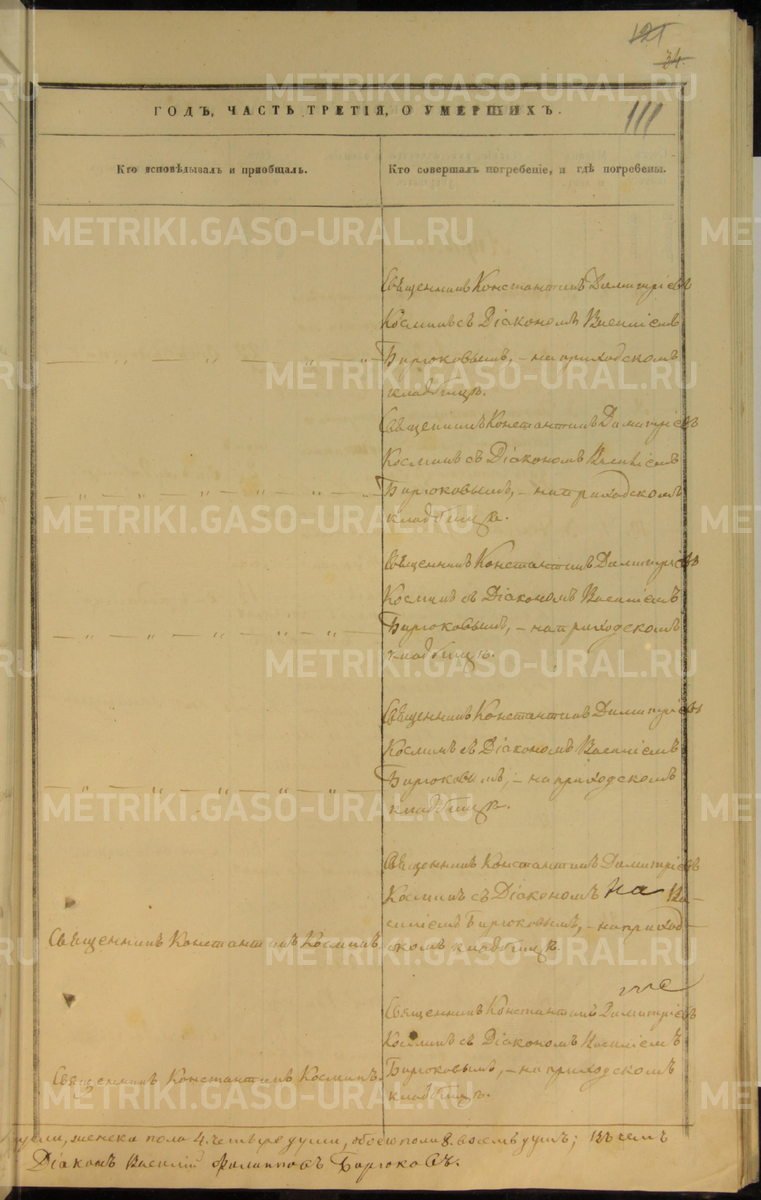 121
34.
111
ГОДЪ, ЧАСТЬ ТРЕТІЯ, О УМЕРШИХЪ.
Кто исповѣдывалъ и пріобщалъ.
Кто совершалъ погребеніе, и гдѣ погребены.
Священникъ Константинъ Димитріевъ
Косминъ съ Діакономъ Василіемъ
Бирюковымъ, – на приходскомъ
кладбищѣ.
Священникъ Константинъ Димитріевъ
Косминъ съ Діакономъ Василіемъ
Бирюковымъ, – на приходскомъ
кладбищѣ.
Священникъ Константинъ Димитріевъ
Косминъ съ Діакономъ Василіемъ
Бирюковымъ, – на приходскомъ
кладбищѣ.
Священникъ Константинъ Димитріевъ
Косминъ съ Діакономъ Василіемъ
Бирюковымъ, – на приходскомъ
кладбищѣ.
Священникъ Константинъ Косминъ.
Священникъ Константинъ Димитріевъ
Косминъ съ Діакономъ на Ва-
силіемъ Бирюковымъ, – на приход-
скомъ кладбищѣ
Священникъ Константинъ Косминъ.
Священникъ Константинъ Димитріевъ
Косминъ съ Діакономъ Василіемъ
Бирюковымъ, – на приходскомъ
кладбищѣ.
души, женска пола 4. четыре души, обоего пола 8. восемь душъ; въ чемъ
Діаконъ Василій Филипповъ Бирюковъ.
METRIKI.GASO-URAL.RU